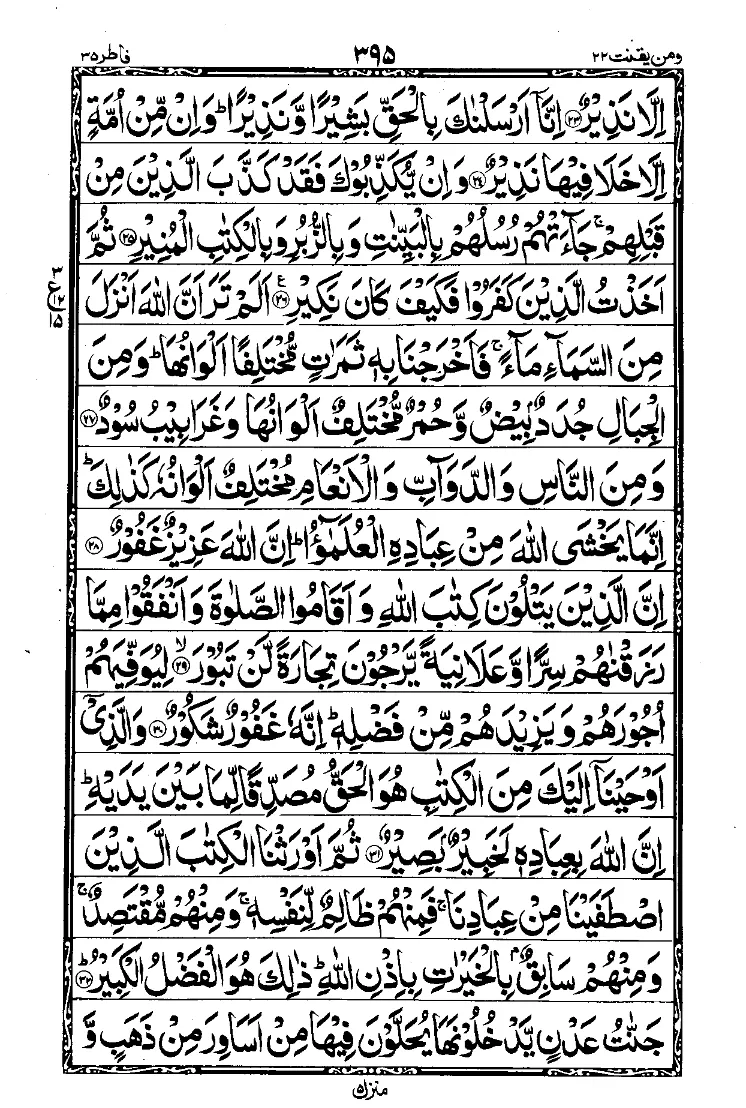 ومن یقنت ۲۲ ۳۹۵ فاطر ۳۵
اِلَّا نَذِیْرٌ ﴿۲۳﴾ اِنَّاۤ اَرْسَلْنٰكَ بِالْحَقِّ بَشِیْرًا وَّ نَذِیْرًا ؕ وَ اِنْ مِّنْ اُمَّةٍ
اِلَّا خَلَا فِیْهَا نَذِیْرٌ ﴿۲۴﴾ وَ اِنْ یُّكَذِّبُوْكَ فَقَدْ كَذَّبَ الَّذِیْنَ مِنْ
قَبْلِهِمْ ۚ جَآءَتْهُمْ رُسُلُهُمْ بِالْبَیِّنٰتِ وَ بِالزُّبُرِ وَ بِالْكِتٰبِ الْمُنِیْرِ ﴿۲۵﴾ ثُمَّ
اَخَذْتُ الَّذِیْنَ كَفَرُوْا فَكَیْفَ كَانَ نَكِیْرِ ﴿۲۶﴾ ع اَلَمْ تَرَ اَنَّ اللّٰهَ اَنْزَلَ
مِنَ السَّمَآءِ مَآءً ۚ فَاَخْرَجْنَا بِهٖ ثَمَرٰتٍ مُّخْتَلِفًا اَلْوَانُهَا ؕ وَ مِنَ
الْجِبَالِ جُدَدٌۢ بِیْضٌ وَّ حُمْرٌ مُّخْتَلِفٌ اَلْوَانُهَا وَ غَرَابِیْبُ سُوْدٌ ﴿۲۷﴾
وَ مِنَ النَّاسِ وَ الدَّوَآبِّ وَ الْاَنْعَامِ مُخْتَلِفٌ اَلْوَانُهٗ كَذٰلِكَ ؕ
اِنَّمَا یَخْشَی اللّٰهَ مِنْ عِبَادِهِ الْعُلَمٰٓؤُا ؕ اِنَّ اللّٰهَ عَزِیْزٌ غَفُوْرٌ ﴿۲۸﴾
اِنَّ الَّذِیْنَ یَتْلُوْنَ كِتٰبَ اللّٰهِ وَ اَقَامُوا الصَّلٰوةَ وَ اَنْفَقُوْا مِمَّا
رَزَقْنٰهُمْ سِرًّا وَّ عَلَانِیَةً یَّرْجُوْنَ تِجَارَةً لَّنْ تَبُوْرَ ﴿۲۹﴾ ۙ لِیُوَفِّیَهُمْ
اُجُوْرَهُمْ وَ یَزِیْدَهُمْ مِّنْ فَضْلِهٖ ؕ اِنَّهٗ غَفُوْرٌ شَكُوْرٌ ﴿۳۰﴾ وَ الَّذِیْۤ
اَوْحَیْنَاۤ اِلَیْكَ مِنَ الْكِتٰبِ هُوَ الْحَقُّ مُصَدِّقًا لِّمَا بَیْنَ یَدَیْهِ ؕ
اِنَّ اللّٰهَ بِعِبَادِهٖ لَخَبِیْرٌۢ بَصِیْرٌ ﴿۳۱﴾ ثُمَّ اَوْرَثْنَا الْكِتٰبَ الَّذِیْنَ
اصْطَفَیْنَا مِنْ عِبَادِنَا ۚ فَمِنْهُمْ ظَالِمٌ لِّنَفْسِهٖ ۚ وَ مِنْهُمْ مُّقْتَصِدٌ ۚ
وَ مِنْهُمْ سَابِقٌۢ بِالْخَیْرٰتِ بِاِذْنِ اللّٰهِ ؕ ذٰلِكَ هُوَ الْفَضْلُ الْكَبِیْرُ ﴿۳۲﴾ ؕ
جَنّٰتُ عَدْنٍ یَّدْخُلُوْنَهَا یُحَلَّوْنَ فِیْهَا مِنْ اَسَاوِرَ مِنْ ذَهَبٍ وَّ
منزل ۵